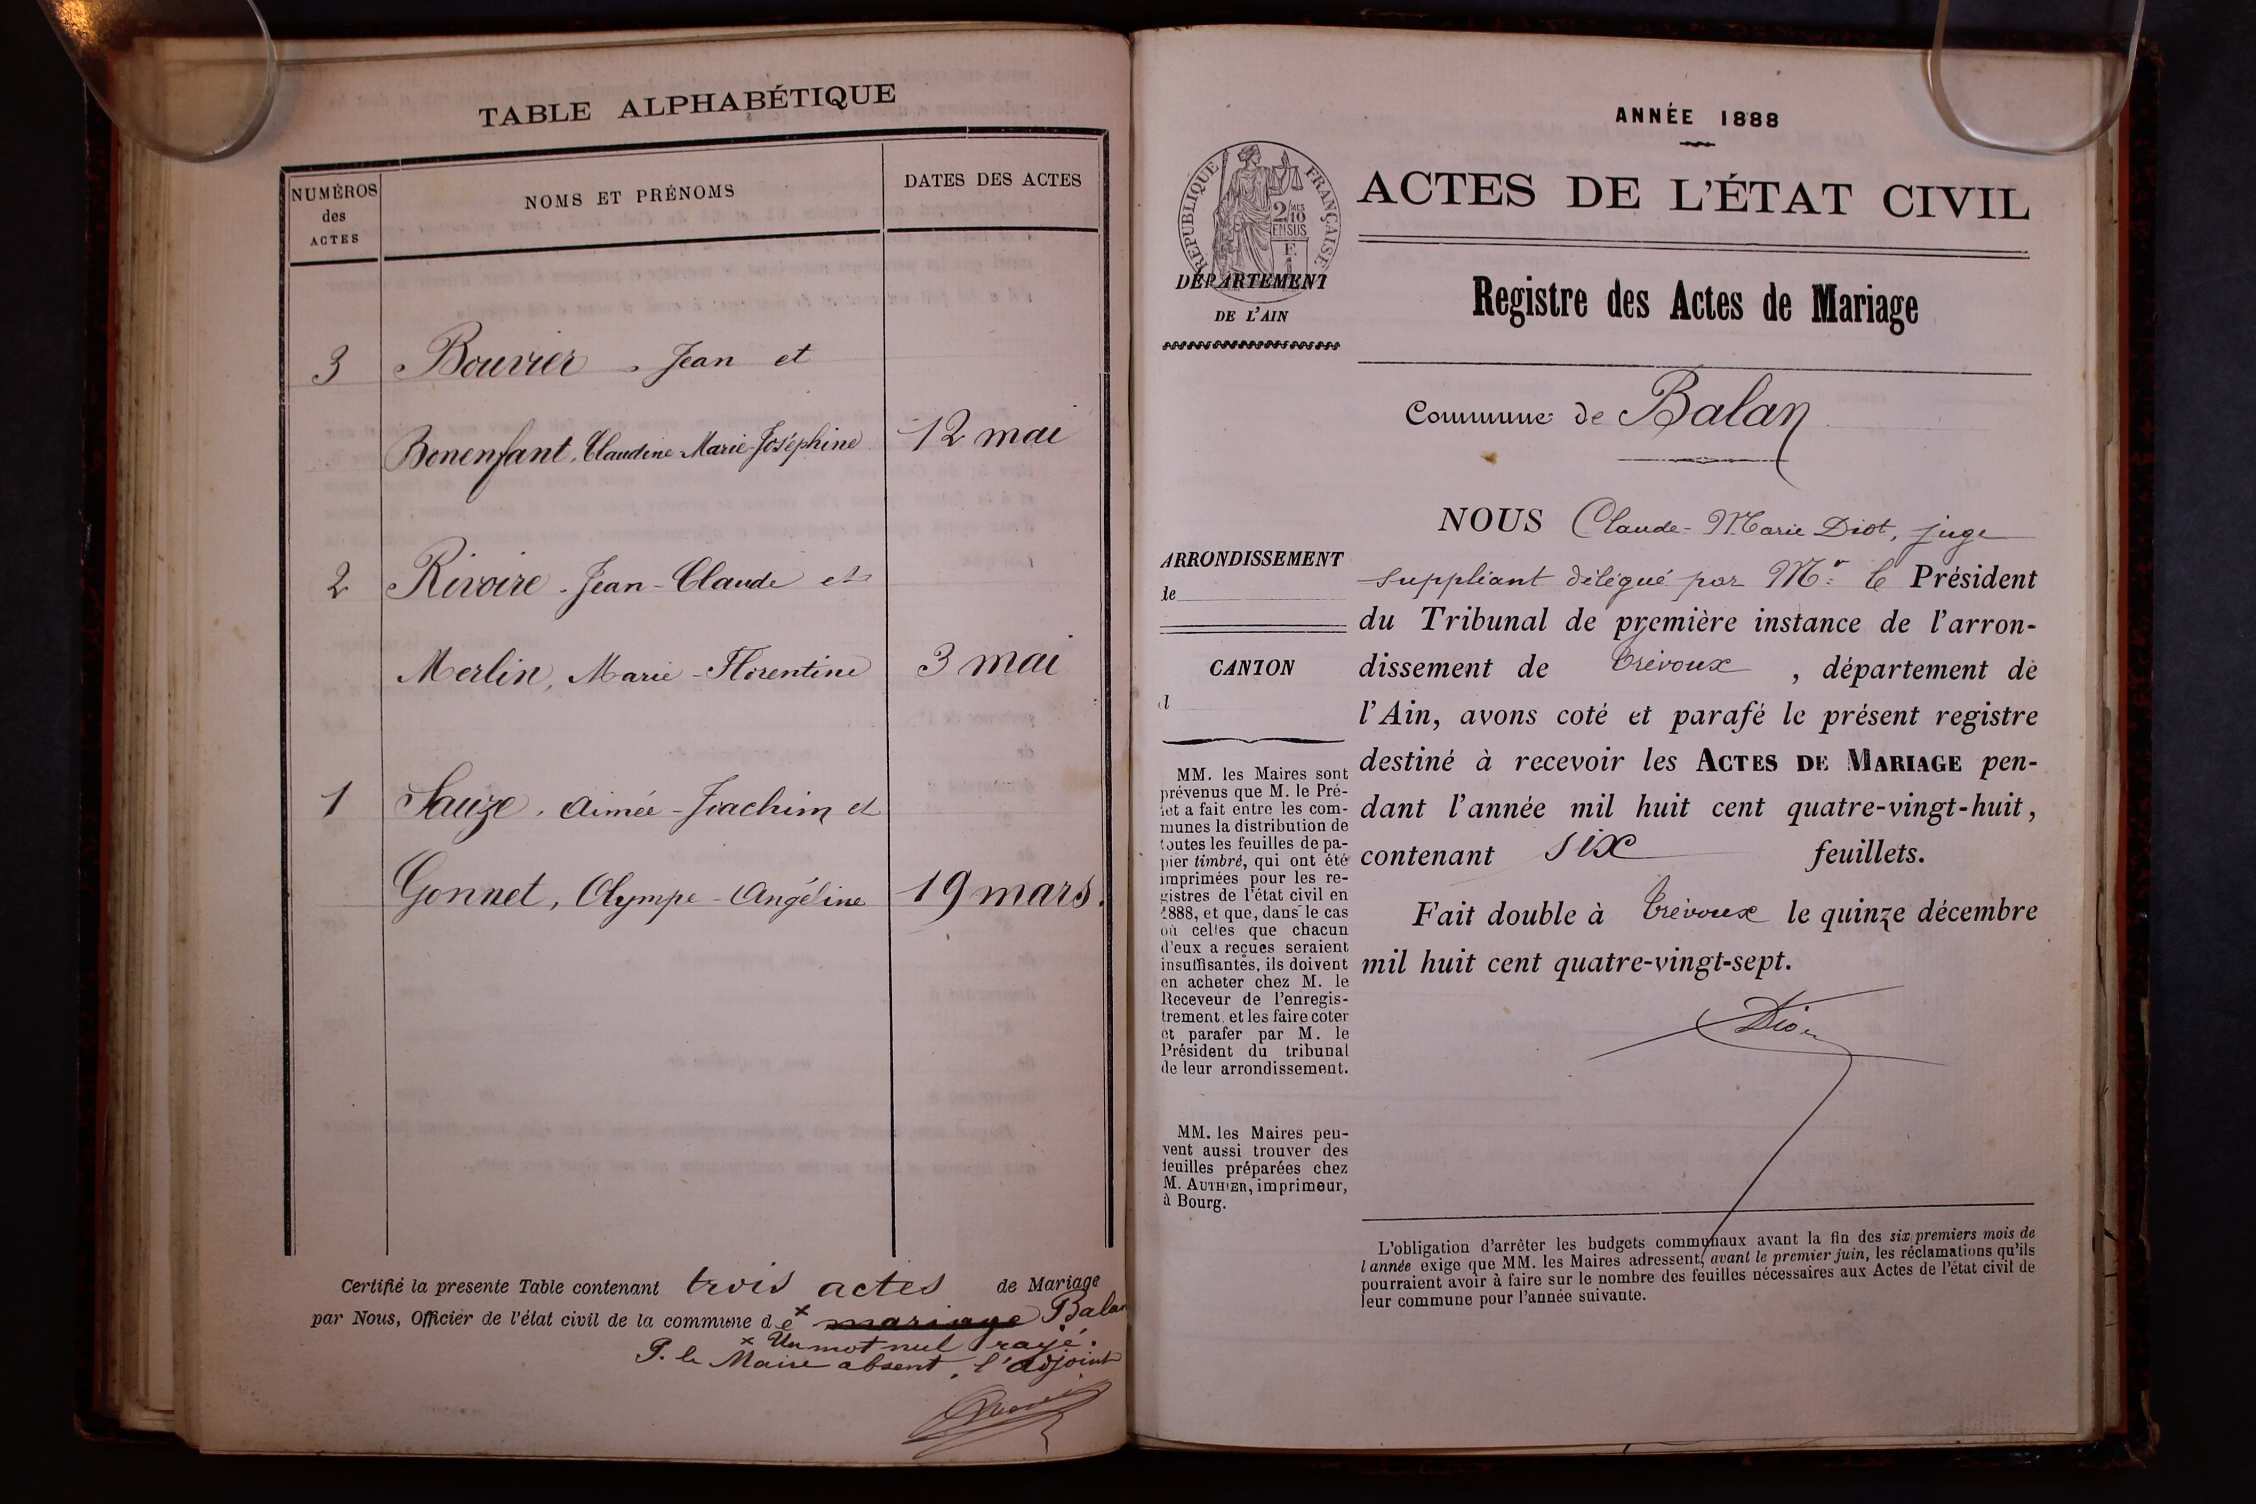 TABLE ALPHABÉTIQUE
NUMÉROS
des
ACTES
NOMS ET PRÉNOMS
DATES DES ACTES
3 Bouvier, Jean et
Bonenfant, Claudine Marie-Joséphine 12 mai
2 Rivoire, Jean-Claude et
Merlin, Marie-Florentine 3 mai
1 Sauze, Aimée-Joachim et
Gonnet, Olympe-Angéline 19 mars.
Certifié la presente Table contenant trois actes de Mariage
par Nous, Officier de l'état civil de la commune de x mariage Balan
x Un mot nul rayé.
P. le Maire absent, l'adjoint
ANNÉE 1888
RÉPUBLIQUE FRANÇAISE
2/10
EN SUS
ACTES DE L'ÉTAT CIVIL
DÉPARTEMENT
DE L'AIN
Registre des Actes de Mariage
Commune de Balan
ARRONDISSEMENT
de
CANTON
d
MM. les Maires sont
prévenus que M. le Pré-
fet a fait entre les com-
munes la distribution de
toutes les feuilles de pa-
pier timbré, qui ont été
imprimées pour les re-
gistres de l'état civil en
1888, et que, dans le cas
où celles que chacun
d'eux a reçues seraient
insuffisantes, ils doivent
en acheter chez M. le
Receveur de l'enregis-
trement, et les faire coter
et parafer par M. le
Président du tribunal
de leur arrondissement.
MM. les Maires peu-
vent aussi trouver des
feuilles préparées chez
M. AUTHIER, imprimeur,
à Bourg.
NOUS Claude-Marie Diot, juge
suppliant délégué par Mr. le Président
du Tribunal de première instance de l'arron-
dissement de Trévoux, département de
l'Ain, avons coté et parafé le présent registre
destiné à recevoir les ACTES DE MARIAGE pen-
dant l'année mil huit cent quatre-vingt-huit,
contenant six feuillets.
Fait double à Trévoux le quinze décembre
mil huit cent quatre-vingt-sept.
Diot
L'obligation d'arrêter les budgets communaux avant la fin des six premiers mois de
l'année exige que MM. les Maires adressent, avant le premier juin, les réclamations qu'ils
pourraient avoir à faire sur le nombre des feuilles nécessaires aux Actes de l'état civil de
leur commune pour l'année suivante.